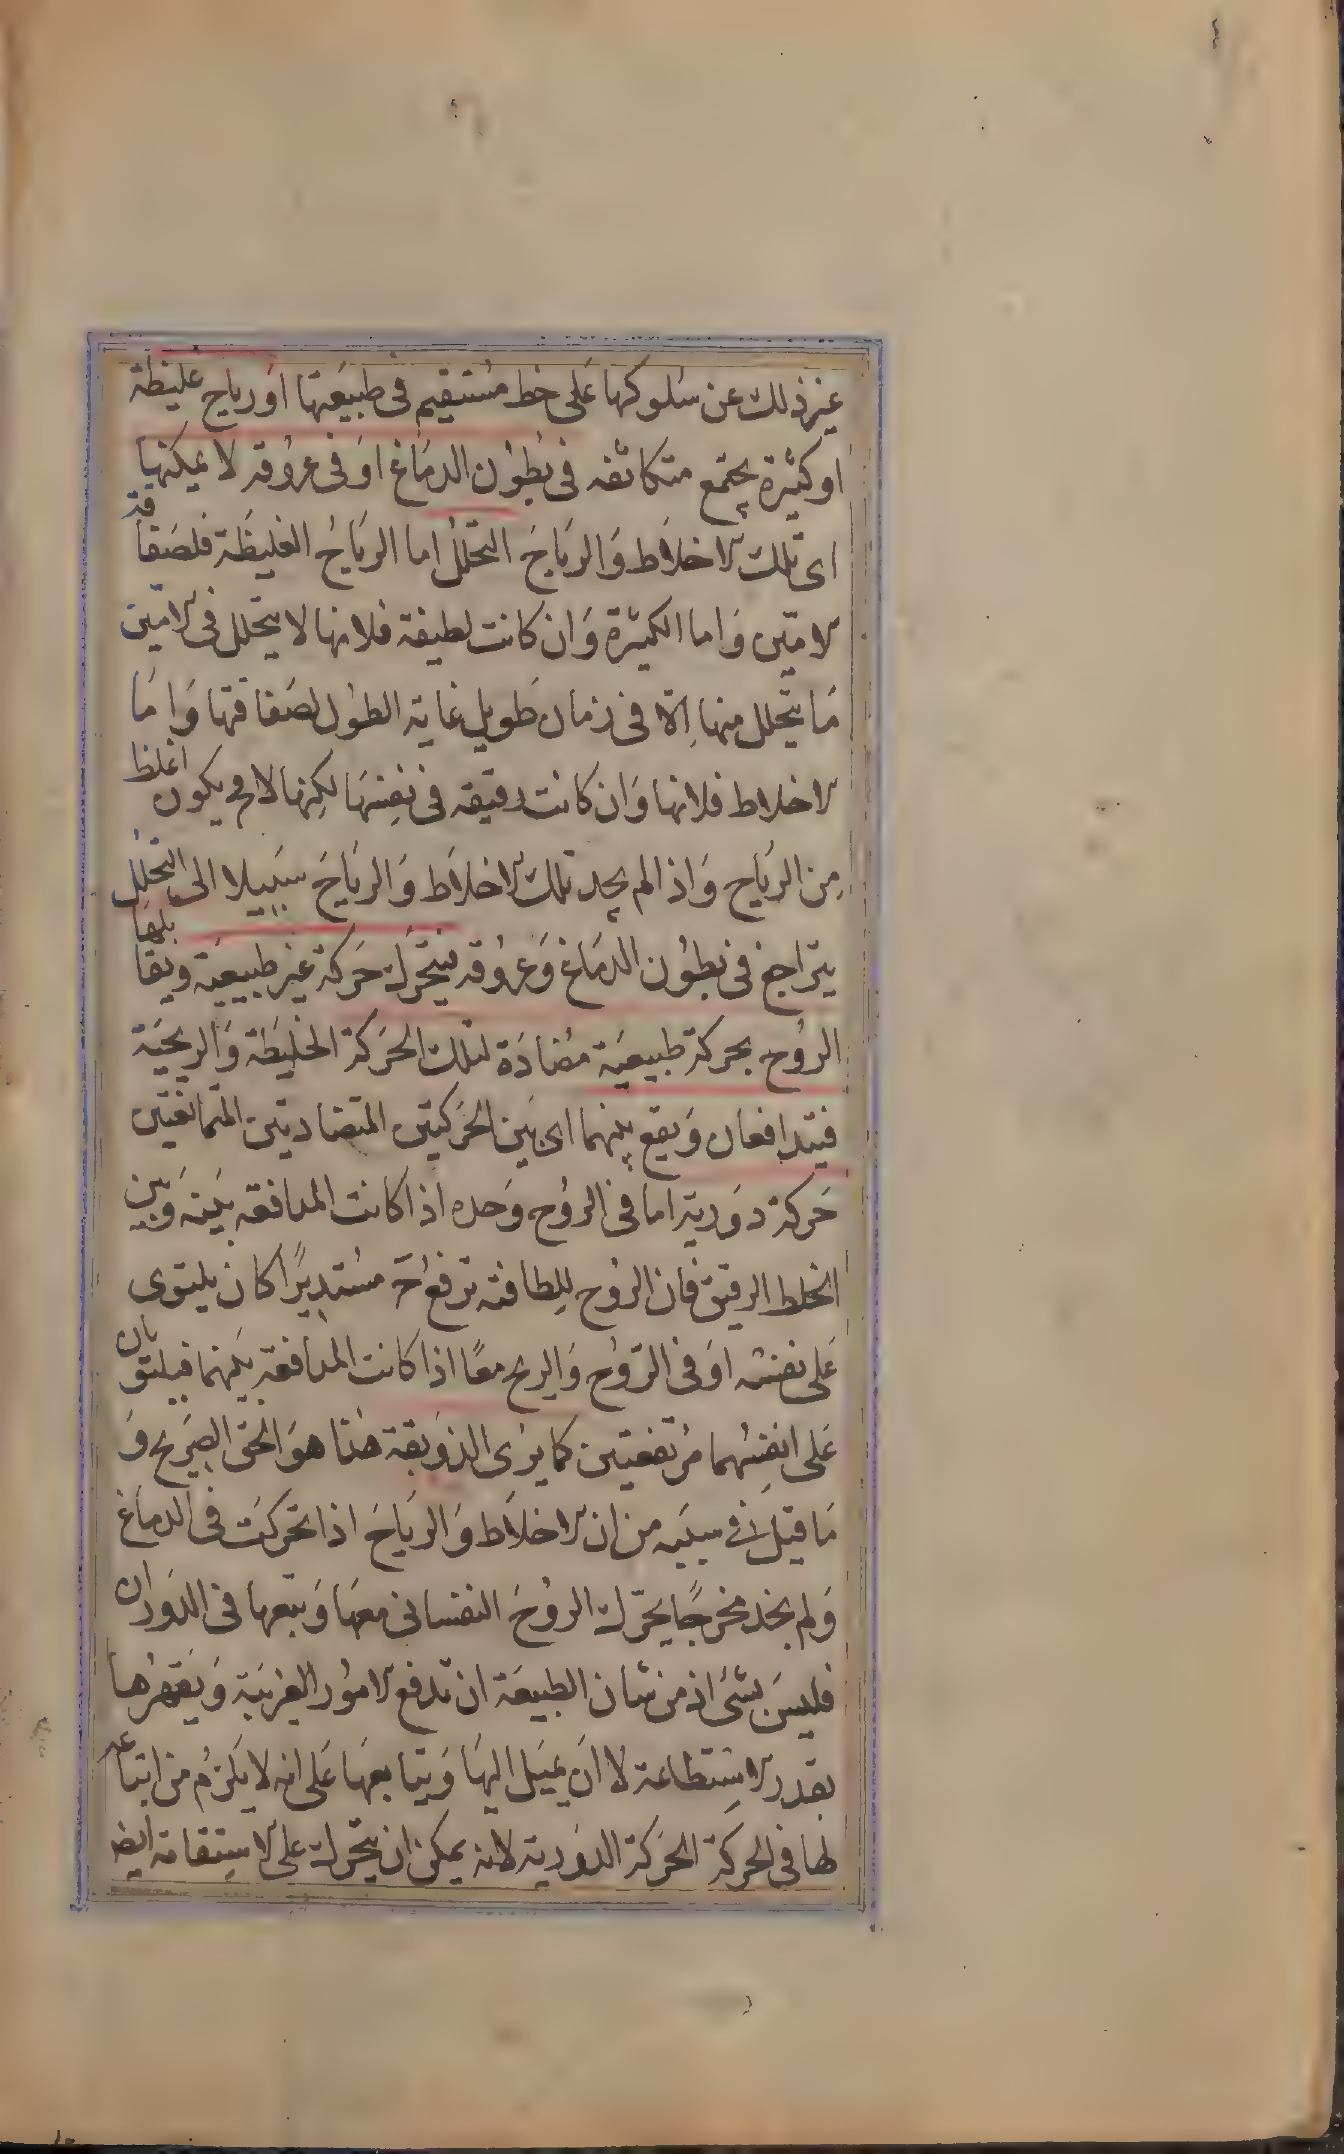 غير ذلك عن سلوكها على خط مستقيم فى طبيعتها او رياح غليظة
او كثيرة يجتمع متكاثفه فى بطون الدماغ او فى عروقه لا يمكنها
اى تلك الاخلاط والرياح التحلل اما الرياح الغليظة فلصفاقة
الامتين واما الكثيرة وان كانت لطيفة فلانها لا يتحلل فى الامتين
ما يتحلل منها الا فى زمان طويل غاية الطول لصفاقتها واما
الاخلاط فلانها وان كانت رقيقه فى نفسها لكنها لا مح يكون اغلظ
من الرياح واذا لم يجد تلك الاخلاط والرياح سبيلا الى التحلل
يتراجع فى بطون الدماغ وعروقه فيتحرك حركة غير طبيعية ويقابلها
الروح بحركة طبيعية مضادة لتلك الحركة الخليطة والريحية
فيتدافعان ويقع بينهما اى بين الحركتين المتضادتين المتمانعتين
حركة دورية اما فى الروح وحده اذا كانت المدافعة بينه وبين
الخلط الرقيق فان الروح للطافته ترفع ح مستديرًا كان يلتوى
على نفسه او فى الروح والريح معًا اذا كانت المدافعة بينهما فيلتويان
على انفسهما مرتفعتين كما يرى الذوبعة هذا هو الحق الصريح و
ما قيل فى سببه من ان الاخلاط والرياح اذا تحركت فى الدماغ
ولم يجد مخرجًا يحرك الروح النفسانى معها ويتبعها فى الدوران
فليس بشئ اذ من شان الطبيعة ان تدفع الامور الغريبة ويقهرها
بقدر الاستطاعة لا ان يميل اليها ويتابعها على انه لا يلزم من اتباعه
لها فى الحركة الحركة الدورية لانه يمكن ان يتحرك على الاستقامة ايض